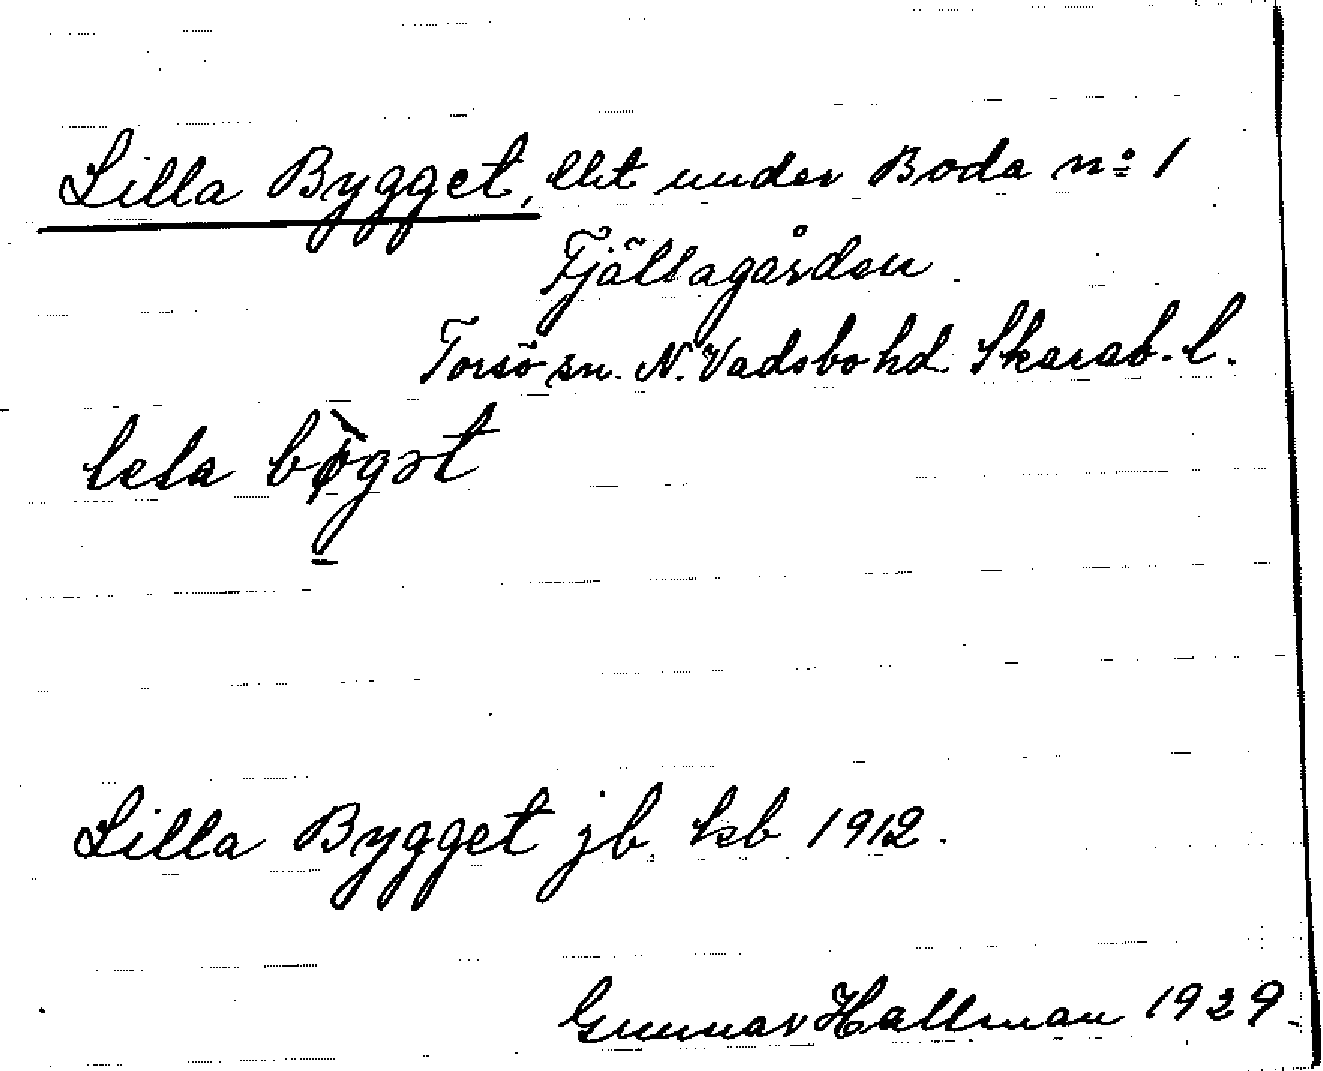 Lilla Bygget, lht under Boda no 1
Fjällagården
Torsö sn. N. Vadsbo hd Skarab. l.
lela bø̀gət
Lilla Bygget jb, kb 1912.
Gunnar Hallman 1929